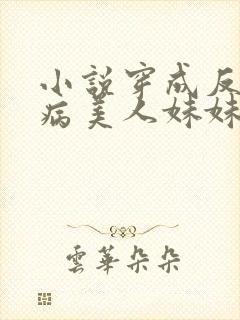 小説穿成反
病美人妹妹
雲華朵朵